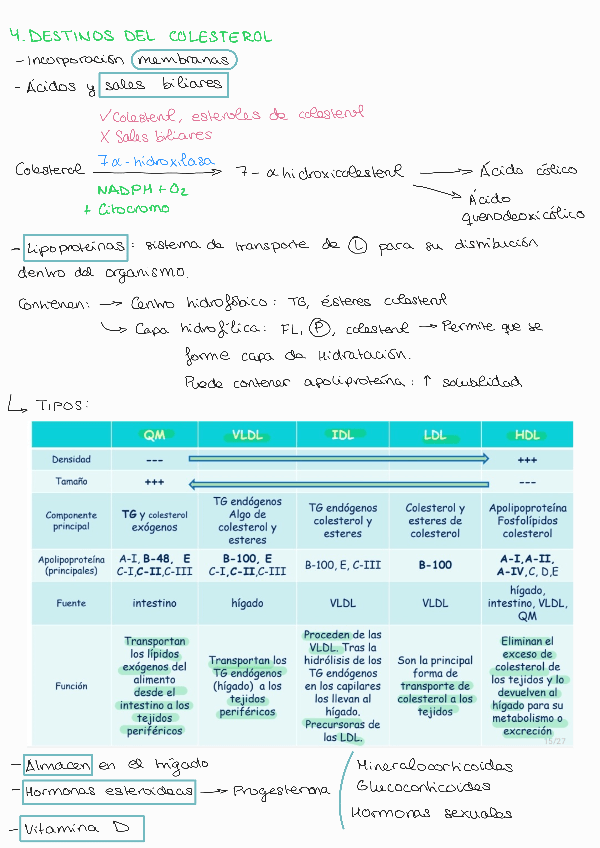 4. DESTINOS DEL COLESTEROL
- Incorporación membranas
- Ácidos y sales biliares
✓ Colesterol, esteroles de colesterol
X Sales biliares
Colesterol 7α-hidroxilasa → 7-α hidroxicolesterol → Ácido cólico
NADPH + O2
+ Citocromo
Ácido
quenodeoxicólico
- Lipoproteínas: sistema de transporte de L para su distribución
dentro del organismo.
Contienen: → Centro hidrofóbico: TG, ésteres colesterol
↳ Capa hidrofílica: FL, P, colesterol → Permite que se
forme capa de hidratación.
Puede contener apoliproteína: ↑ solubilidad
↳ TIPOS:
QM VLDL IDL LDL HDL
Densidad --- +++
Tamaño +++ ---
Componente principal
TG y colesterol exógenos
TG endógenos
Algo de
colesterol y
esteres
TG endógenos
colesterol y
esteres
Colesterol y
esteres de
colesterol
Apolipoproteína
Fosfolípidos
colesterol
Apolipoproteína
(principales)
A-I, B-48, E
C-I,C-II,C-III
B-100, E
C-I,C-II,C-III
B-100, E, C-III
B-100
A-I,A-II,
A-IV,C, D,E
Fuente
intestino
hígado
VLDL
VLDL
hígado,
intestino, VLDL,
QM
Función
Transportan
los lípidos
exógenos del
alimento
desde el
intestino a los
tejidos
periféricos
Transportan los
TG endógenos
(hígado) a los
tejidos
periféricos
Proceden de las
VLDL. Tras la
hidrólisis de los
TG endógenos
en los capilares
los llevan al
hígado.
Precursoras de
las LDL.
Son la principal
forma de
transporte de
colesterol a los
tejidos
Eliminan el
exceso de
colesterol de
los tejidos y lo
devuelven al
hígado para su
metabolismo o
excreción
15/27
- Almacen en el hígado
- Hormonas esteroideas → Progesterona
Mineralocorticoides
Glucocorticoides
Hormonas sexuales
- Vitamina D